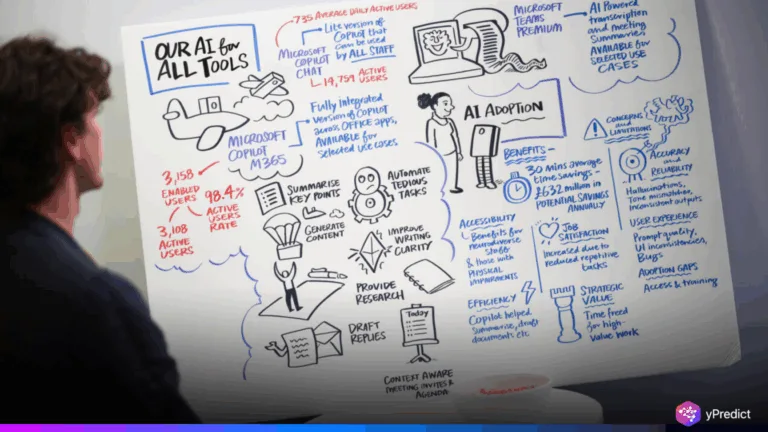 OUR AI for
ALL TOOLS
735 AVERAGE DAILY ACTIVE USERS
MICROSOFT
COPILOT
CHAT
Lite version of
Copilot that
can be used
by ALL STAFF
14,791 ACTIVE
USERS
MICROSOFT
TEAMS
PREMIUM
AI Powered
transcription
and meeting
Summaries,
AVAILABLE for
SELECTED USE
CASES
MICROSOFT
COPILOT
M365
Fully Integrated
version of COPILOT
across OFFICE apps,
AVAILABLE for
selected use cases
3,158
ENABLED
USERS
98.4%
ACTIVE
USERS
RATE
3,108
ACTIVE
USERS
SUMMARISE
KEY POINTS
AUTOMATE
TEDIOUS
TASKS
GENERATE
CONTENT
IMPROVE
WRITING
CLARITY
PROVIDE
RESEARCH
DRAFT
REPLIES
Today
CONTEXT AWARE
MEETING INVITES &
AGENDA
AI ADOPTION
BENEFITS –
30 mins average
time savings –
£632 million in
POTENTIAL SAVINGS
ANNUALLY
ACCESSIBILITY
Benefits for
neurodiverse
staff
& those with
PHYSICAL
IMPAIRMENTS
JOB
SATISFACTION
Increased due to
reduced repetitive
tasks
EFFICIENCY
Copilot helped
summarise, draft
documents etc
STRATEGIC
VALUE
Time freed
for high-
value work
CONCERNS
and
LIMITATIONS
ACCURACY
and
RELIABILITY
Hallucinations,
Tone mismatches,
inconsistent outputs
USER EXPERIENCE
Prompt quality,
UI inconsistencies,
Bugs
ADOPTION GAPS
Access & training
yPredict